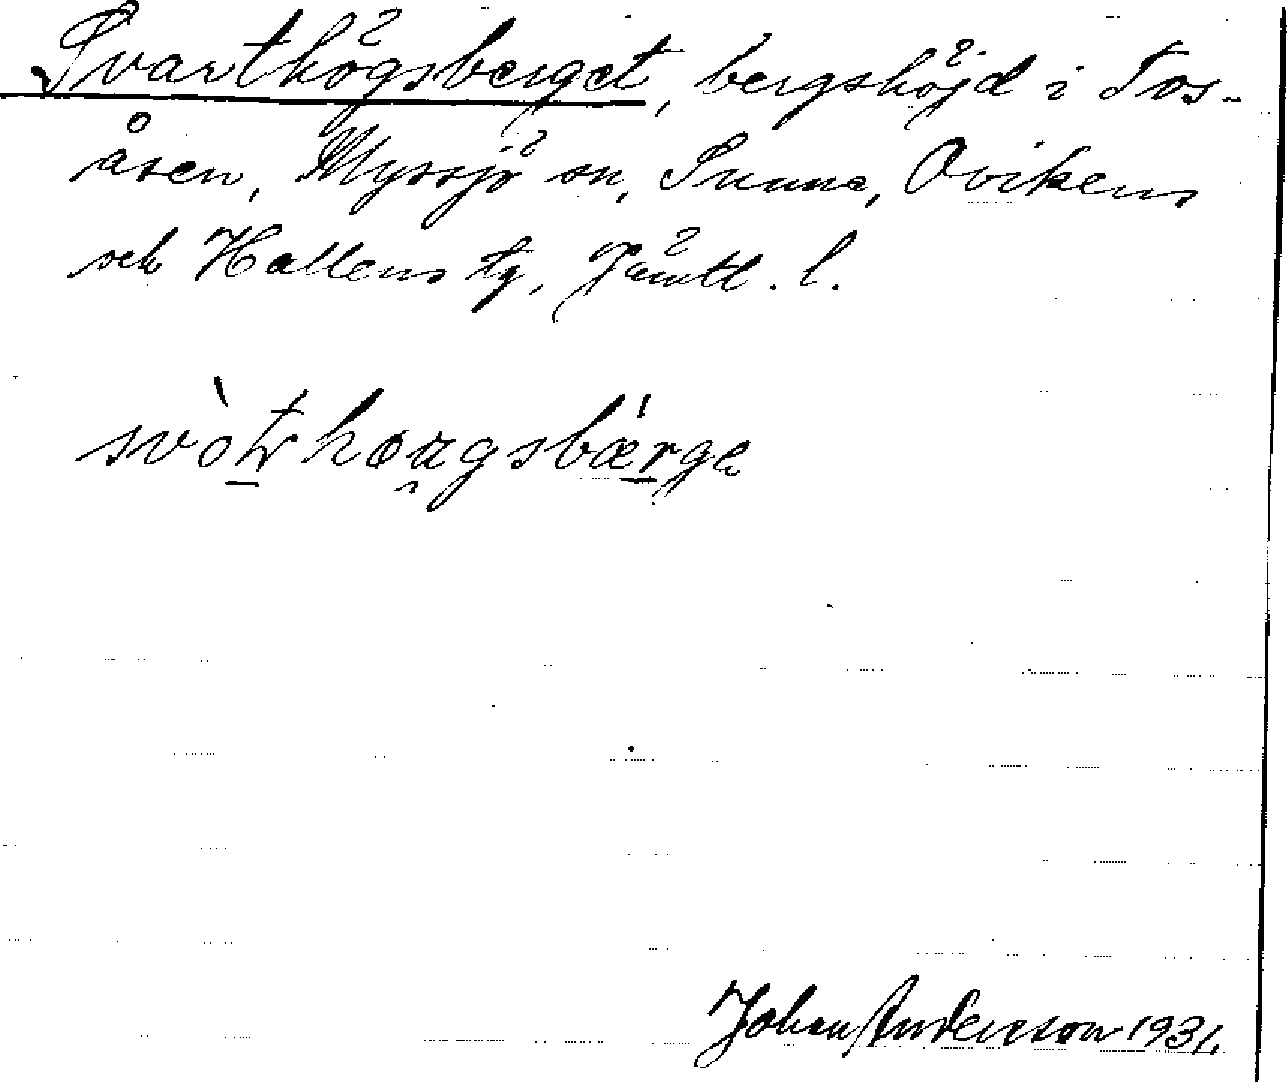 Svarthögsberget, bergshöjd i Tos-
åsen, Myssjö sn, Sunne, Ovikens
och Hallens tg, Jämtl. l.
svòt̠hou̯gsbǽ̠rge
Johan Anderson 1931.